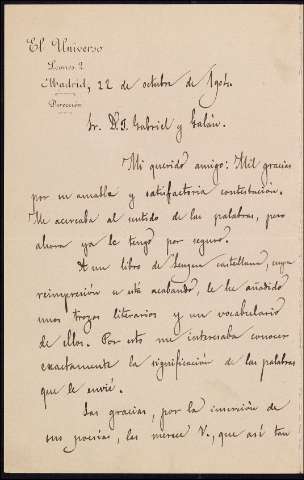 El Universo
Madrid, 22 de octubre de 1904.
Dirección
Sr. D. J. Gabriel y Galán.
Mi querido amigo: Mil gracias
por su amable y satisfactoria contestación.
Me acercaba al sentido de las palabras, pero
ahora ya le tengo por seguro.
A un libro de lengua castellana, cuya
reimpresión se está acabando, le he añadido
unos trozos literarios y un vocabulario
de ellos. Por esto me interesaba conocer
exactamente la significación de las palabras
que le envié.
Las gracias, por la inserción de
sus poesías, las merece V., que así tan